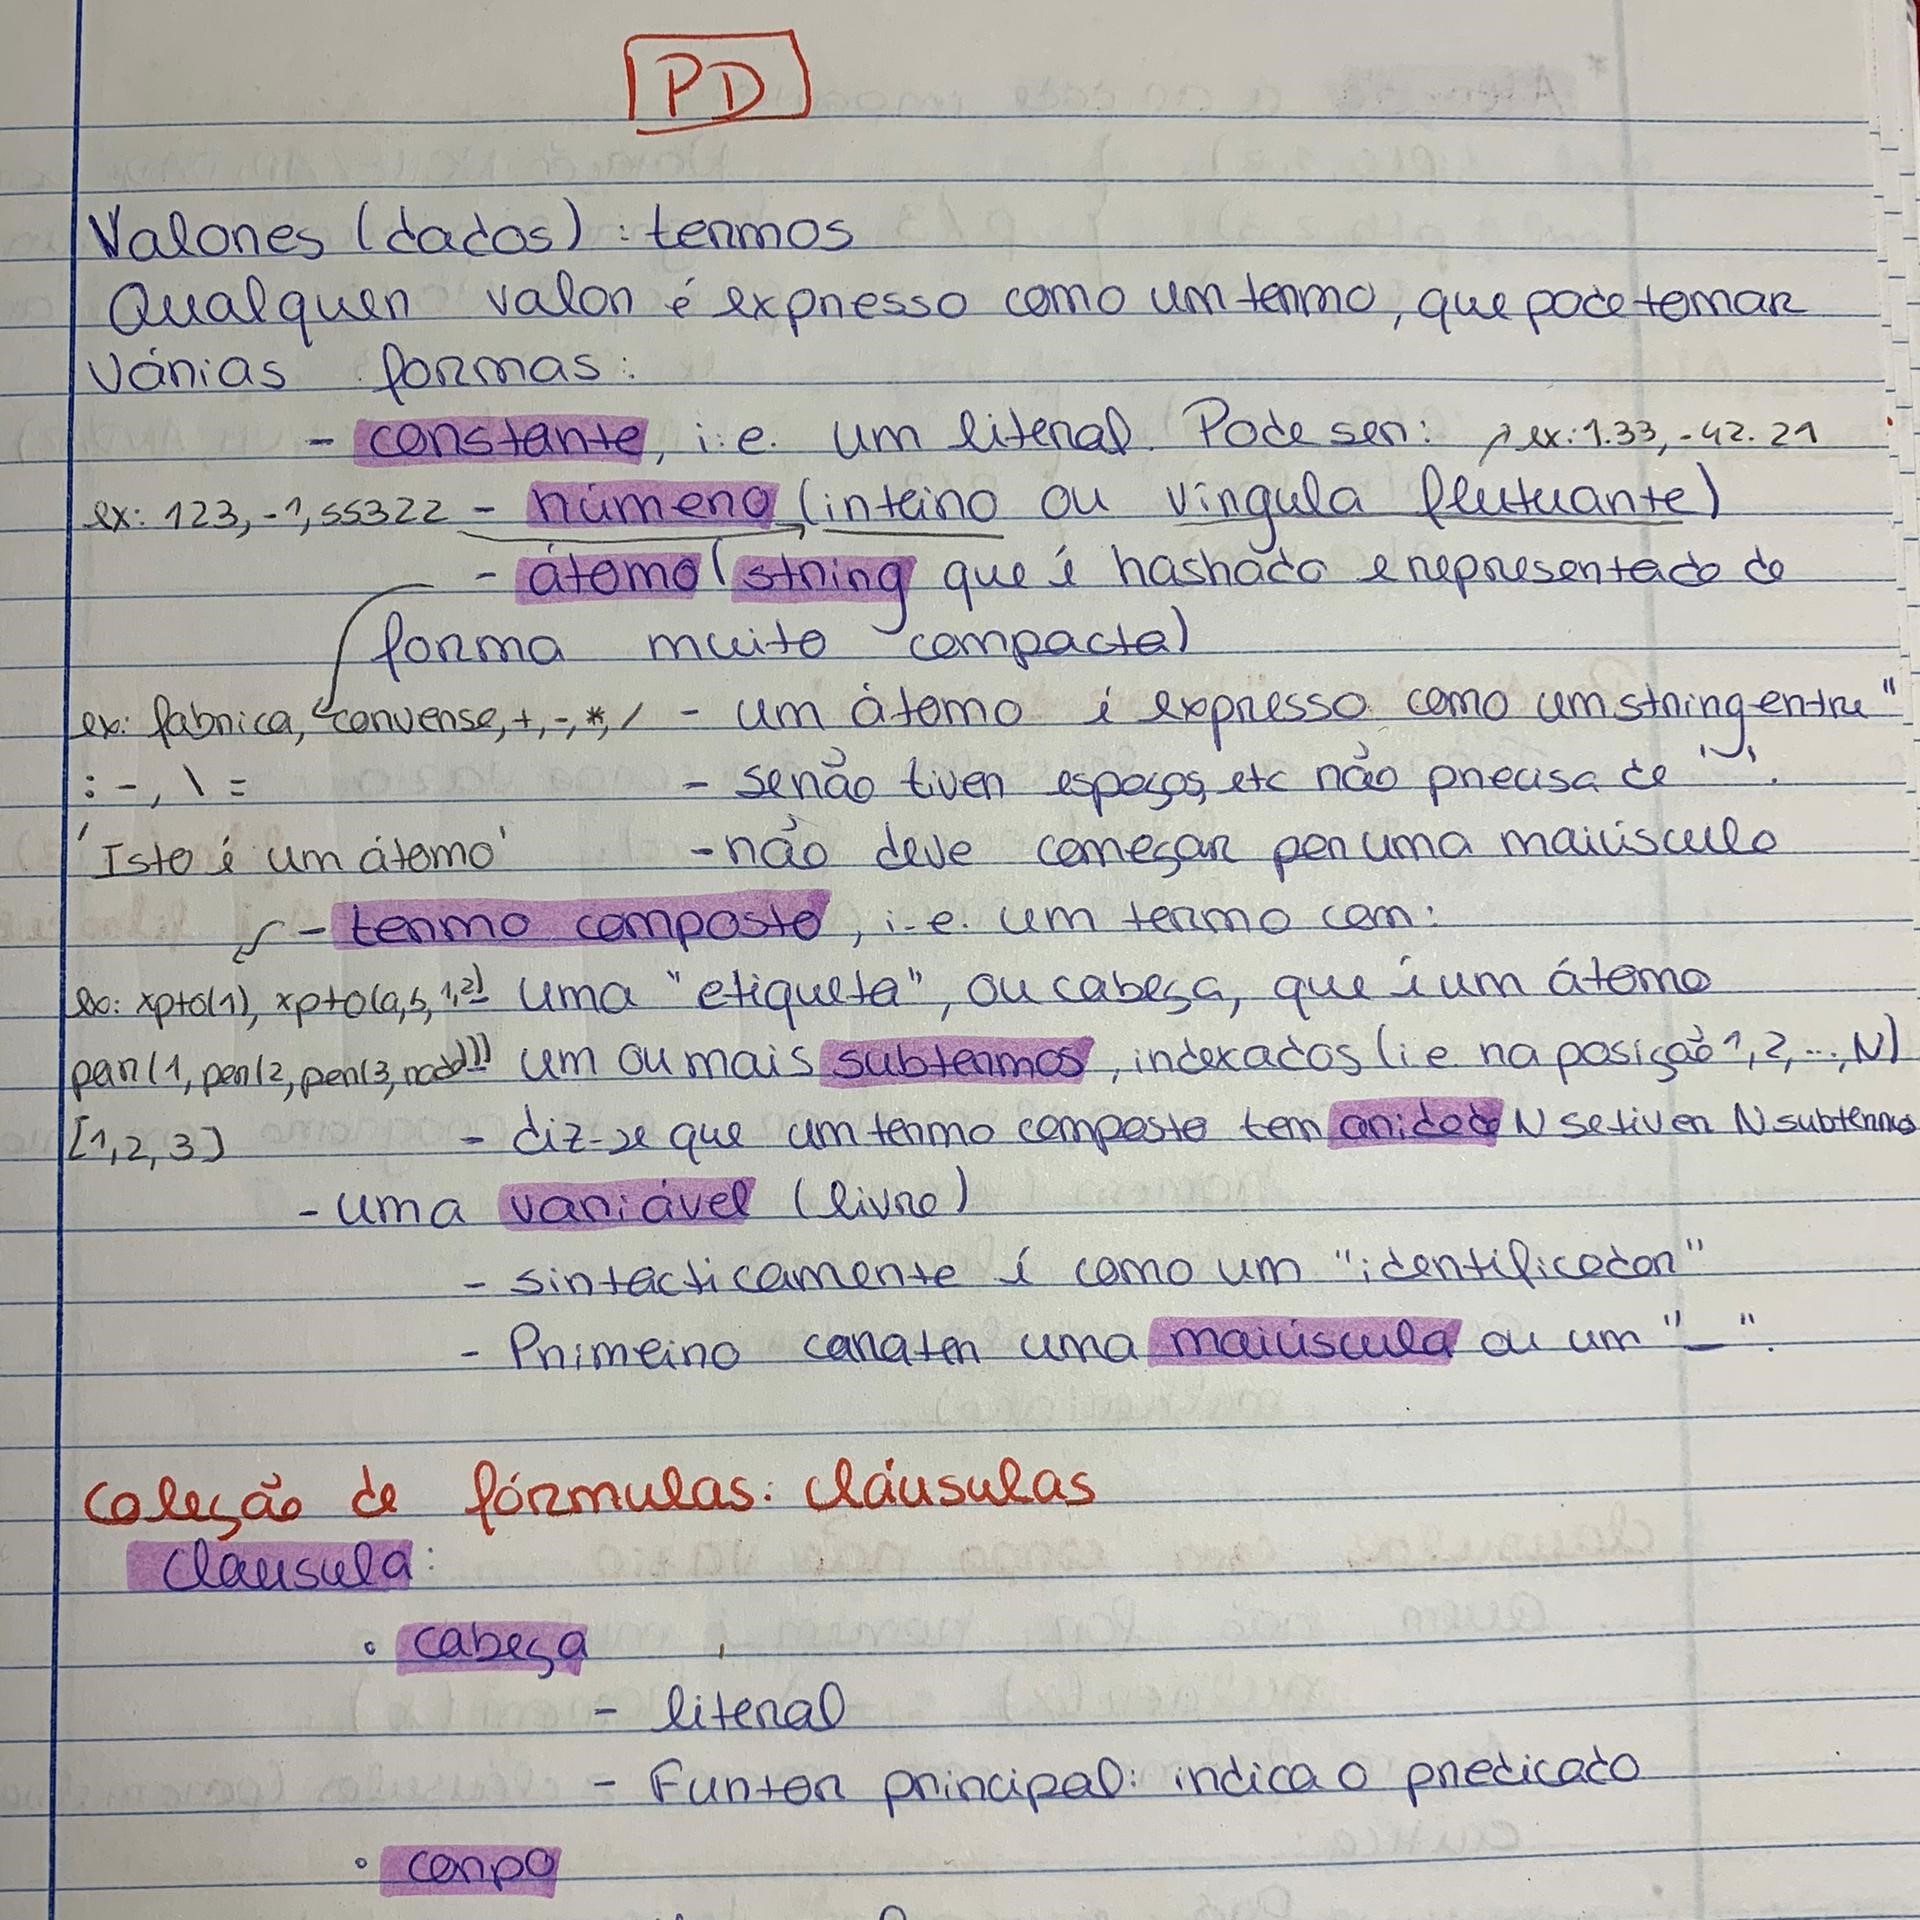 PD
Valores (dados): termos
Qualquer valor é expresso como um termo, que pode tomar
várias formas:
- constante, i.e. um literal. Pode ser: ex: 1.33, -42.21
ex: 123, -1, 55322 - número (inteiro ou vírgula flutuante)
- átomo (string que é hashado e representado de
forma muito compacta)
ex: fabrica, converse, +, -, *, / - um átomo é expresso como um string entre ''
:-, \= - se não tiver espaços, etc não precisa de ''.
'Isto é um átomo' - não deve começar por uma maiúscula
- termo composto, i.e. um termo com:
ex: xpto(1), xpto(a,b,1,2) uma "etiqueta", ou cabeça, que é um átomo
par(1, par(2, par(3, nada))) um ou mais subtermos, indexados (i.e na posição 1, 2, ..., N)
[1, 2, 3] - diz-se que um termo composto tem aridade N se tiver N subtermos
- uma variável (livre)
- sintácticamente é como um "identificador"
- Primeiro caracter uma maiúscula ou um "_".
Coleção de fórmulas: cláusulas
Clausula:
• cabeça
- literal
- Funtor principal: indica o predicado
• corpo